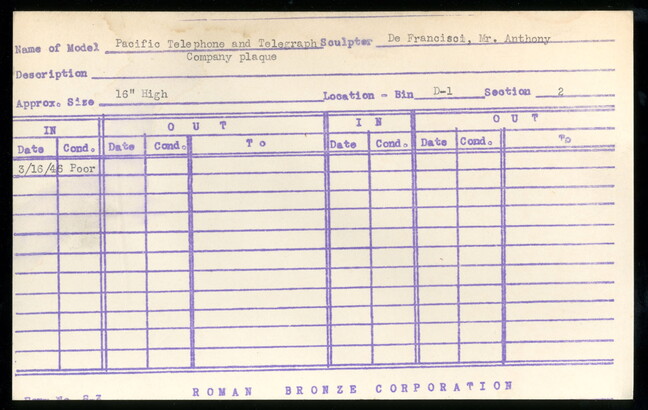 Name of Model Pacific Telephone and Telegraph Sculptor De Francisci, Mr. Anthony
Company plaque
Description
Approx. Size 16" High Location - Bin D-1 Section 2
IN OUT IN OUT
Date Cond. Date Cond. To Date Cond. Date Cond. To
3/16/46 Poor
ROMAN BRONZE CORPORATION